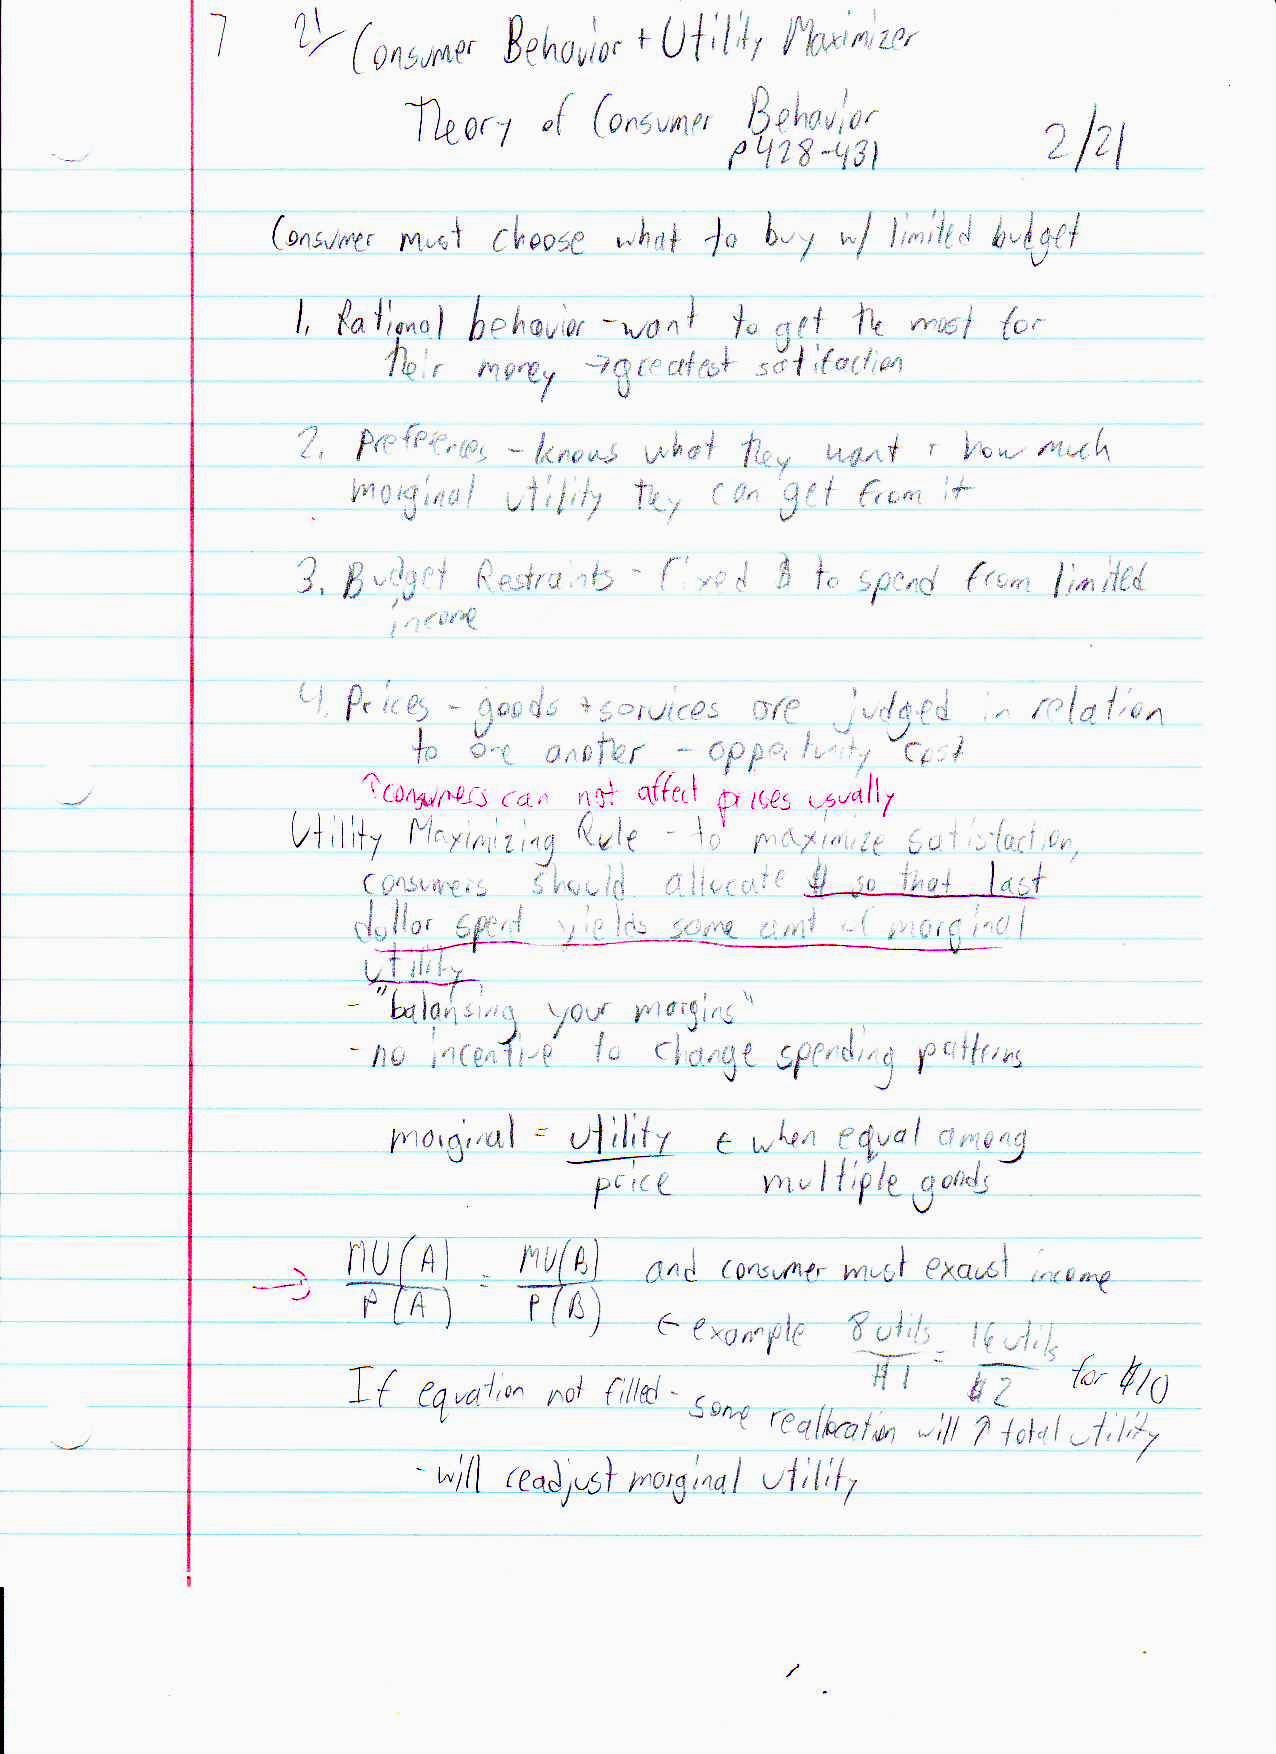 7 21 Consumer Behavior + Utility Maximizer
Theory of Consumer Behavior
p428-431 2/21
Consumer must choose what to buy w/ limited budget
1. Rational behavior - want to get the most for
their money → greatest satifaction
2. Preferences - knows what they want + how much
marginal utility they can get from it
3. Budget Restraints - fixed $ to spend from limited
income
4. Prices - goods + services are judged in relation
to one another - opportunity cost
↑ consumers can not affect prices usually
Utility Maximizing Rule - to maximize satisfaction,
consumers should allocate $ so that last
dollar spent yields same amt of marginal
utility
- "balansing your margins"
- no incentive to change spending patterns
marginal = utility ← when equal among
price multiple goods
→ MU(A) = MU(B) and consumer must exaust income
P(A) P(B)
← example 8 utils = 16 utils
$1 $2 for $10
If equation not filled - some reallocation will ↑ total utility
- will readjust marginal utility